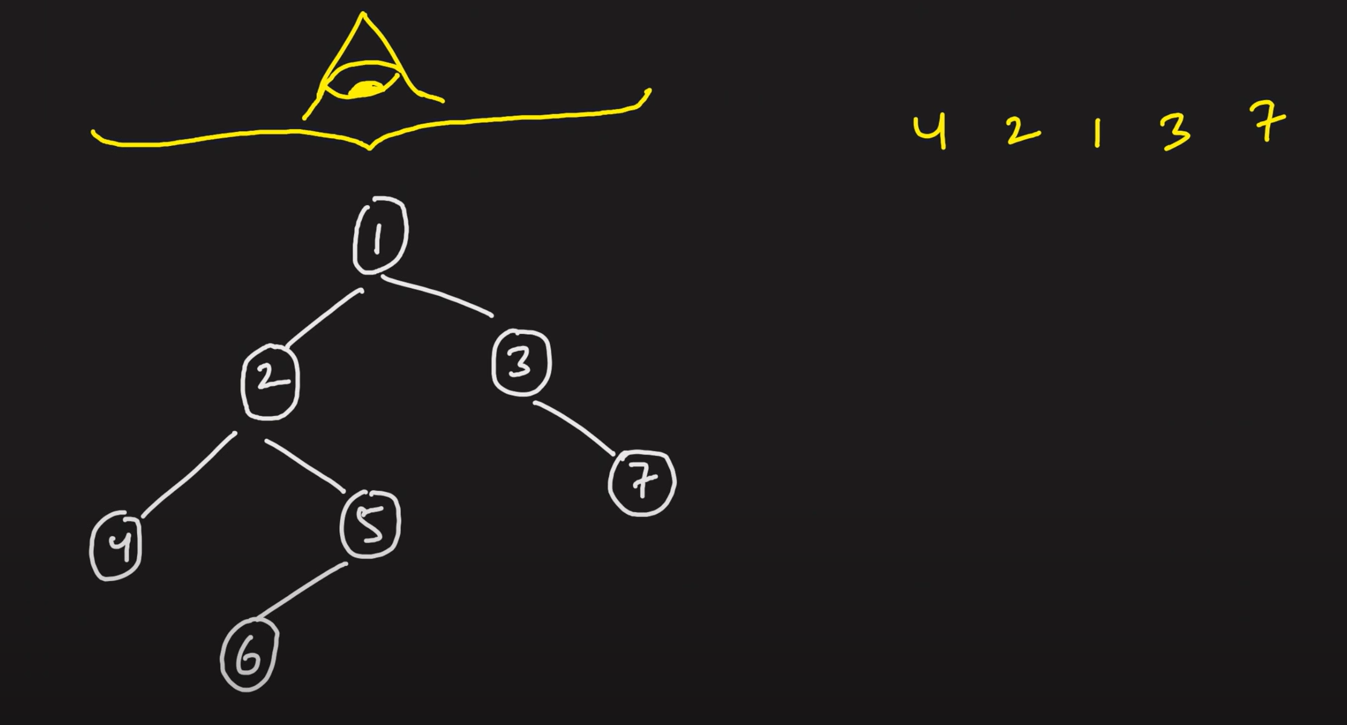 4 2 1 3 7
1
2 3
4 5 7
6